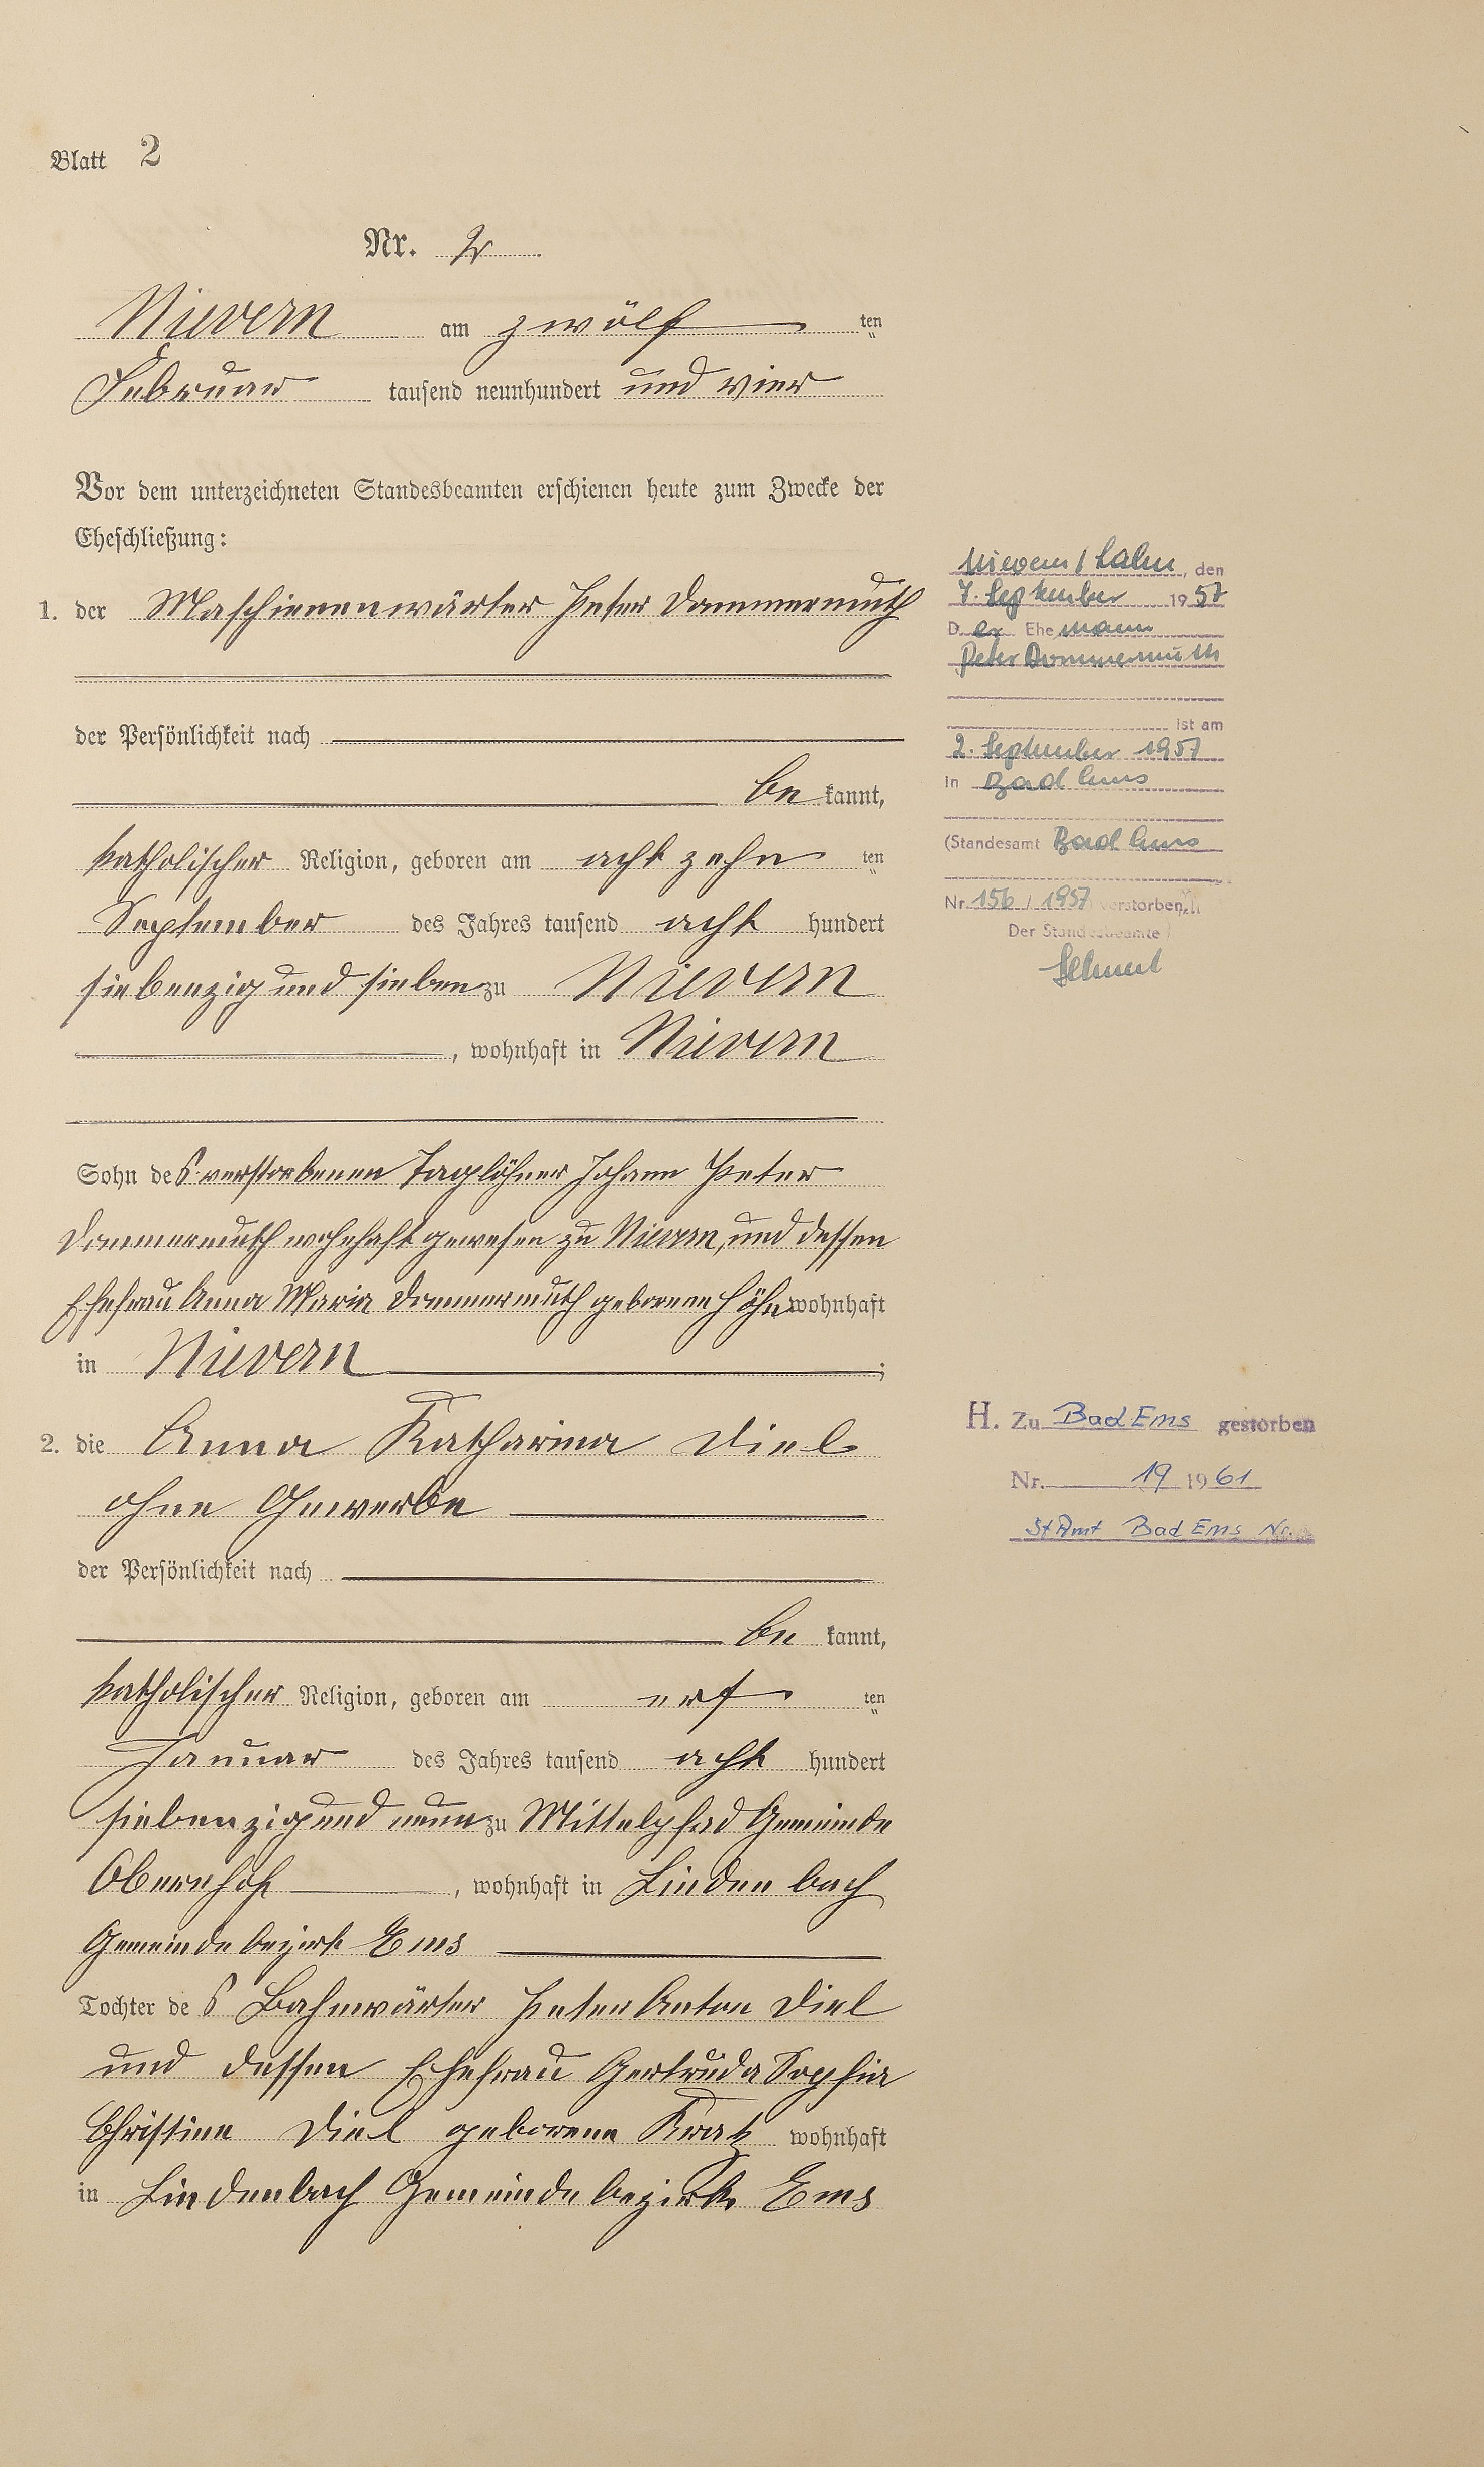 Blatt 2
Nr. 2
Nievern am zwölf ten
Februar tausend neunhundert und vier
Vor dem unterzeichneten Standesbeamten erschienen heute zum Zwecke der
Eheschließung:
1. der Maschienenwärter Peter Dommermuth
der Persönlichkeit nach
be kannt,
katholischer Religion, geboren am acht zehn ten
September des Jahres tausend acht hundert
siebenzig und sieben zu Nievern
, wohnhaft in Nievern
Sohn des verstorbenen Taglöhner Johann Peter
Dommermuth wohnhaft gewesen zu Nievern, und dessen
Ehefrau Anna Maria Dommermuth geborene Höhn wohnhaft
in Nievern ;
2. die Anna Katharina Diel
ohne Gewerbe
der Persönlichkeit nach
be kannt,
katholischer Religion, geboren am erst ten
Januar des Jahres tausend acht hundert
siebenzig und neun zu Mittelpfad Gemeinde
Obernhof , wohnhaft in Lindenbach
Gemeindebezirk Ems
Tochter des Bahnwärter Peter Anton Diel
und dessen Ehefrau Gertruda Sophia
Christine Diel geborene Kratz wohnhaft
in Lindenbach Gemeindebezirk Ems
Nievern / Lahn, den
7. September 1957
Der Ehemann
Peter Dommermuth
ist am
2. September 1957
in Bad Ems
(Standesamt Bad Ems
Nr. 156 / 1957 verstorben.
Der Standesbeamte
H. Zu Bad Ems gestorben
Nr. 19 1961
St Amt Bad Ems No.